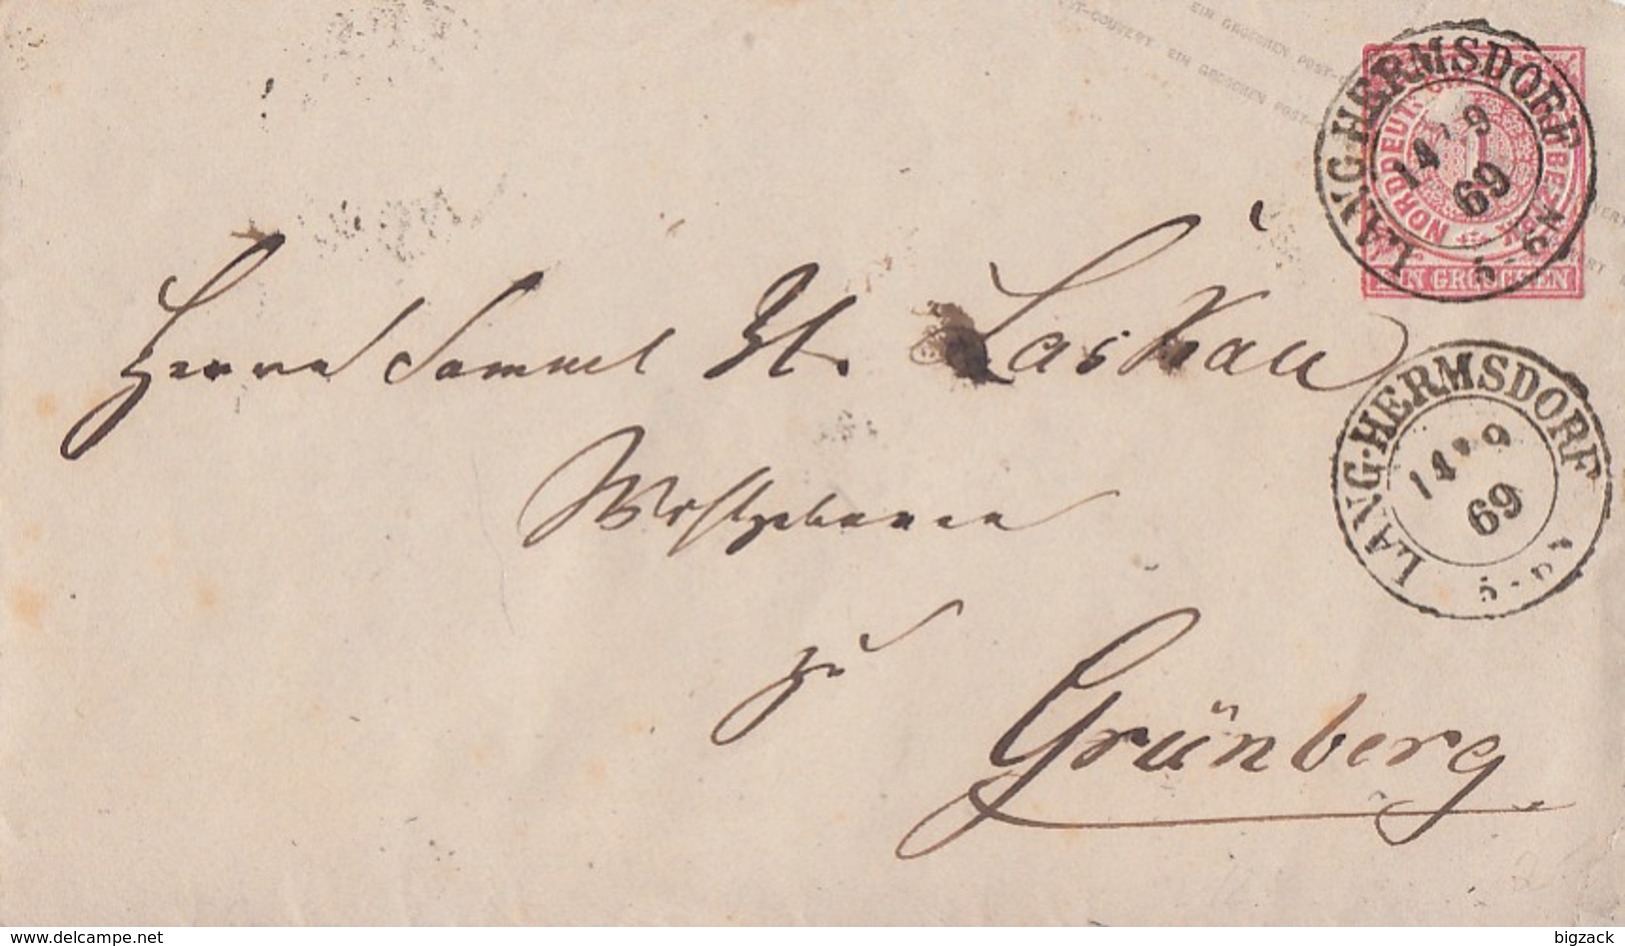 EIN GROSCHEN POST-
POST-COUVERT EIN GROSCHEN POST-
LANG-HERMSDORF
14 9
69
5-6 N
NORDDEUTSCHER POSTBEZIRK
1
EIN GROSCHEN
Herrn Samuel H. Laskau
LANG-HERMSDORF
14 9
69
5-6
Wohlgeboren
zu
Grünberg
www.delcampe.net
bigzack